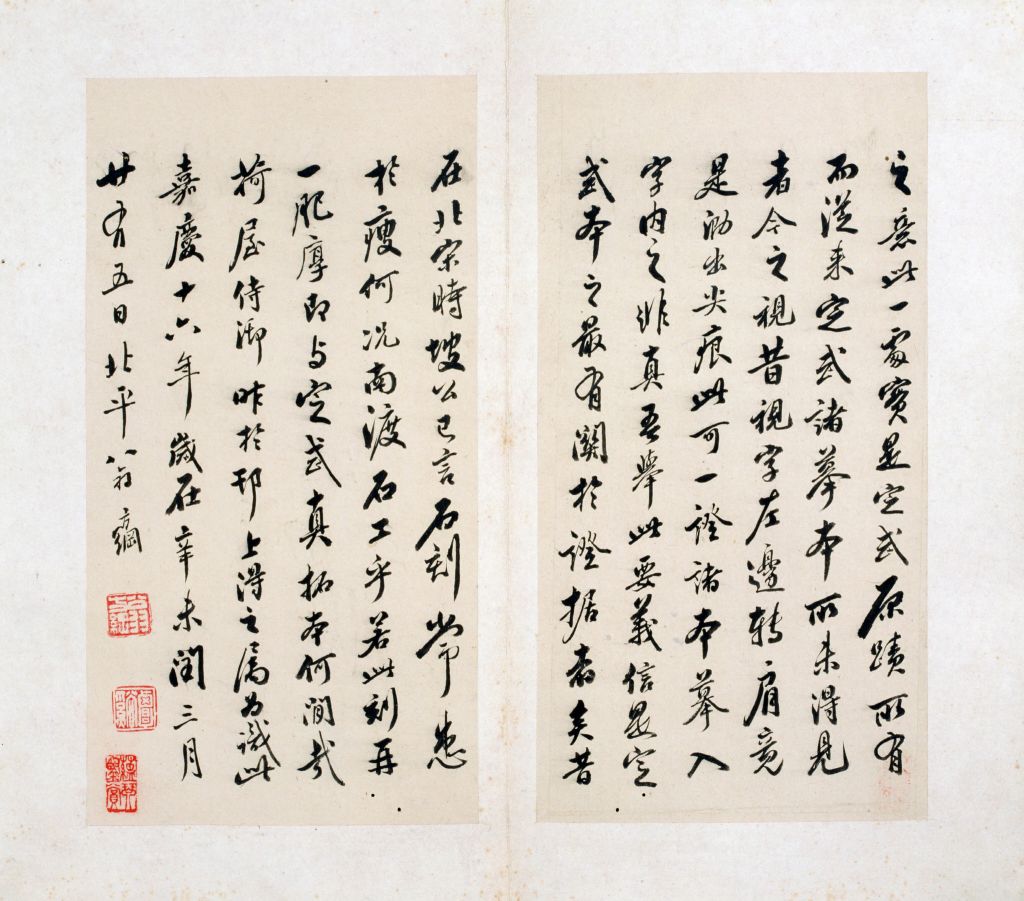 之意此一處實是定武原蹟所有
而從來定武諸摹本所未得見
者今之視昔視字左邊轉肩竟
是泐出尖痕此可一證諸本摹入
字內之非真吾舉此要義信是定
武本之最有關於證据者矣昔
在北宋時坡公已言石刻常患
於瘦何況南渡石工乎若此刻再
一肥厚即与定武真拓本何間哉
椅屋侍御昨於邗上得之属為識此
嘉慶十六年歲在辛未閏三月
廿有五日北平翁方綱